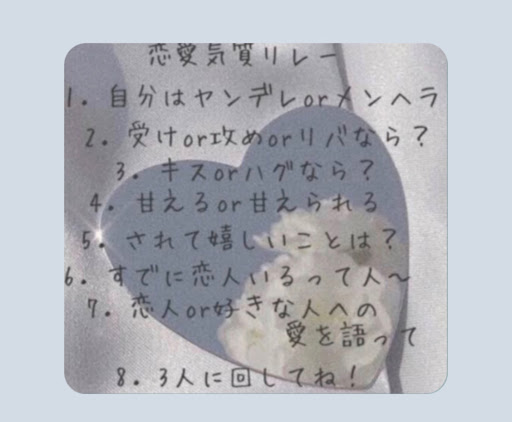 恋愛気質リレー
1. 自分はヤンデレorメンヘラ
2. 受けor攻めorリバなら？
3. キスorハグなら？
4. 甘えるor甘えられる
5. されて嬉しいことは？
6. すでに恋人いるって人〜
7. 恋人or好きな人への
愛を語って
8. 3人に回してね！